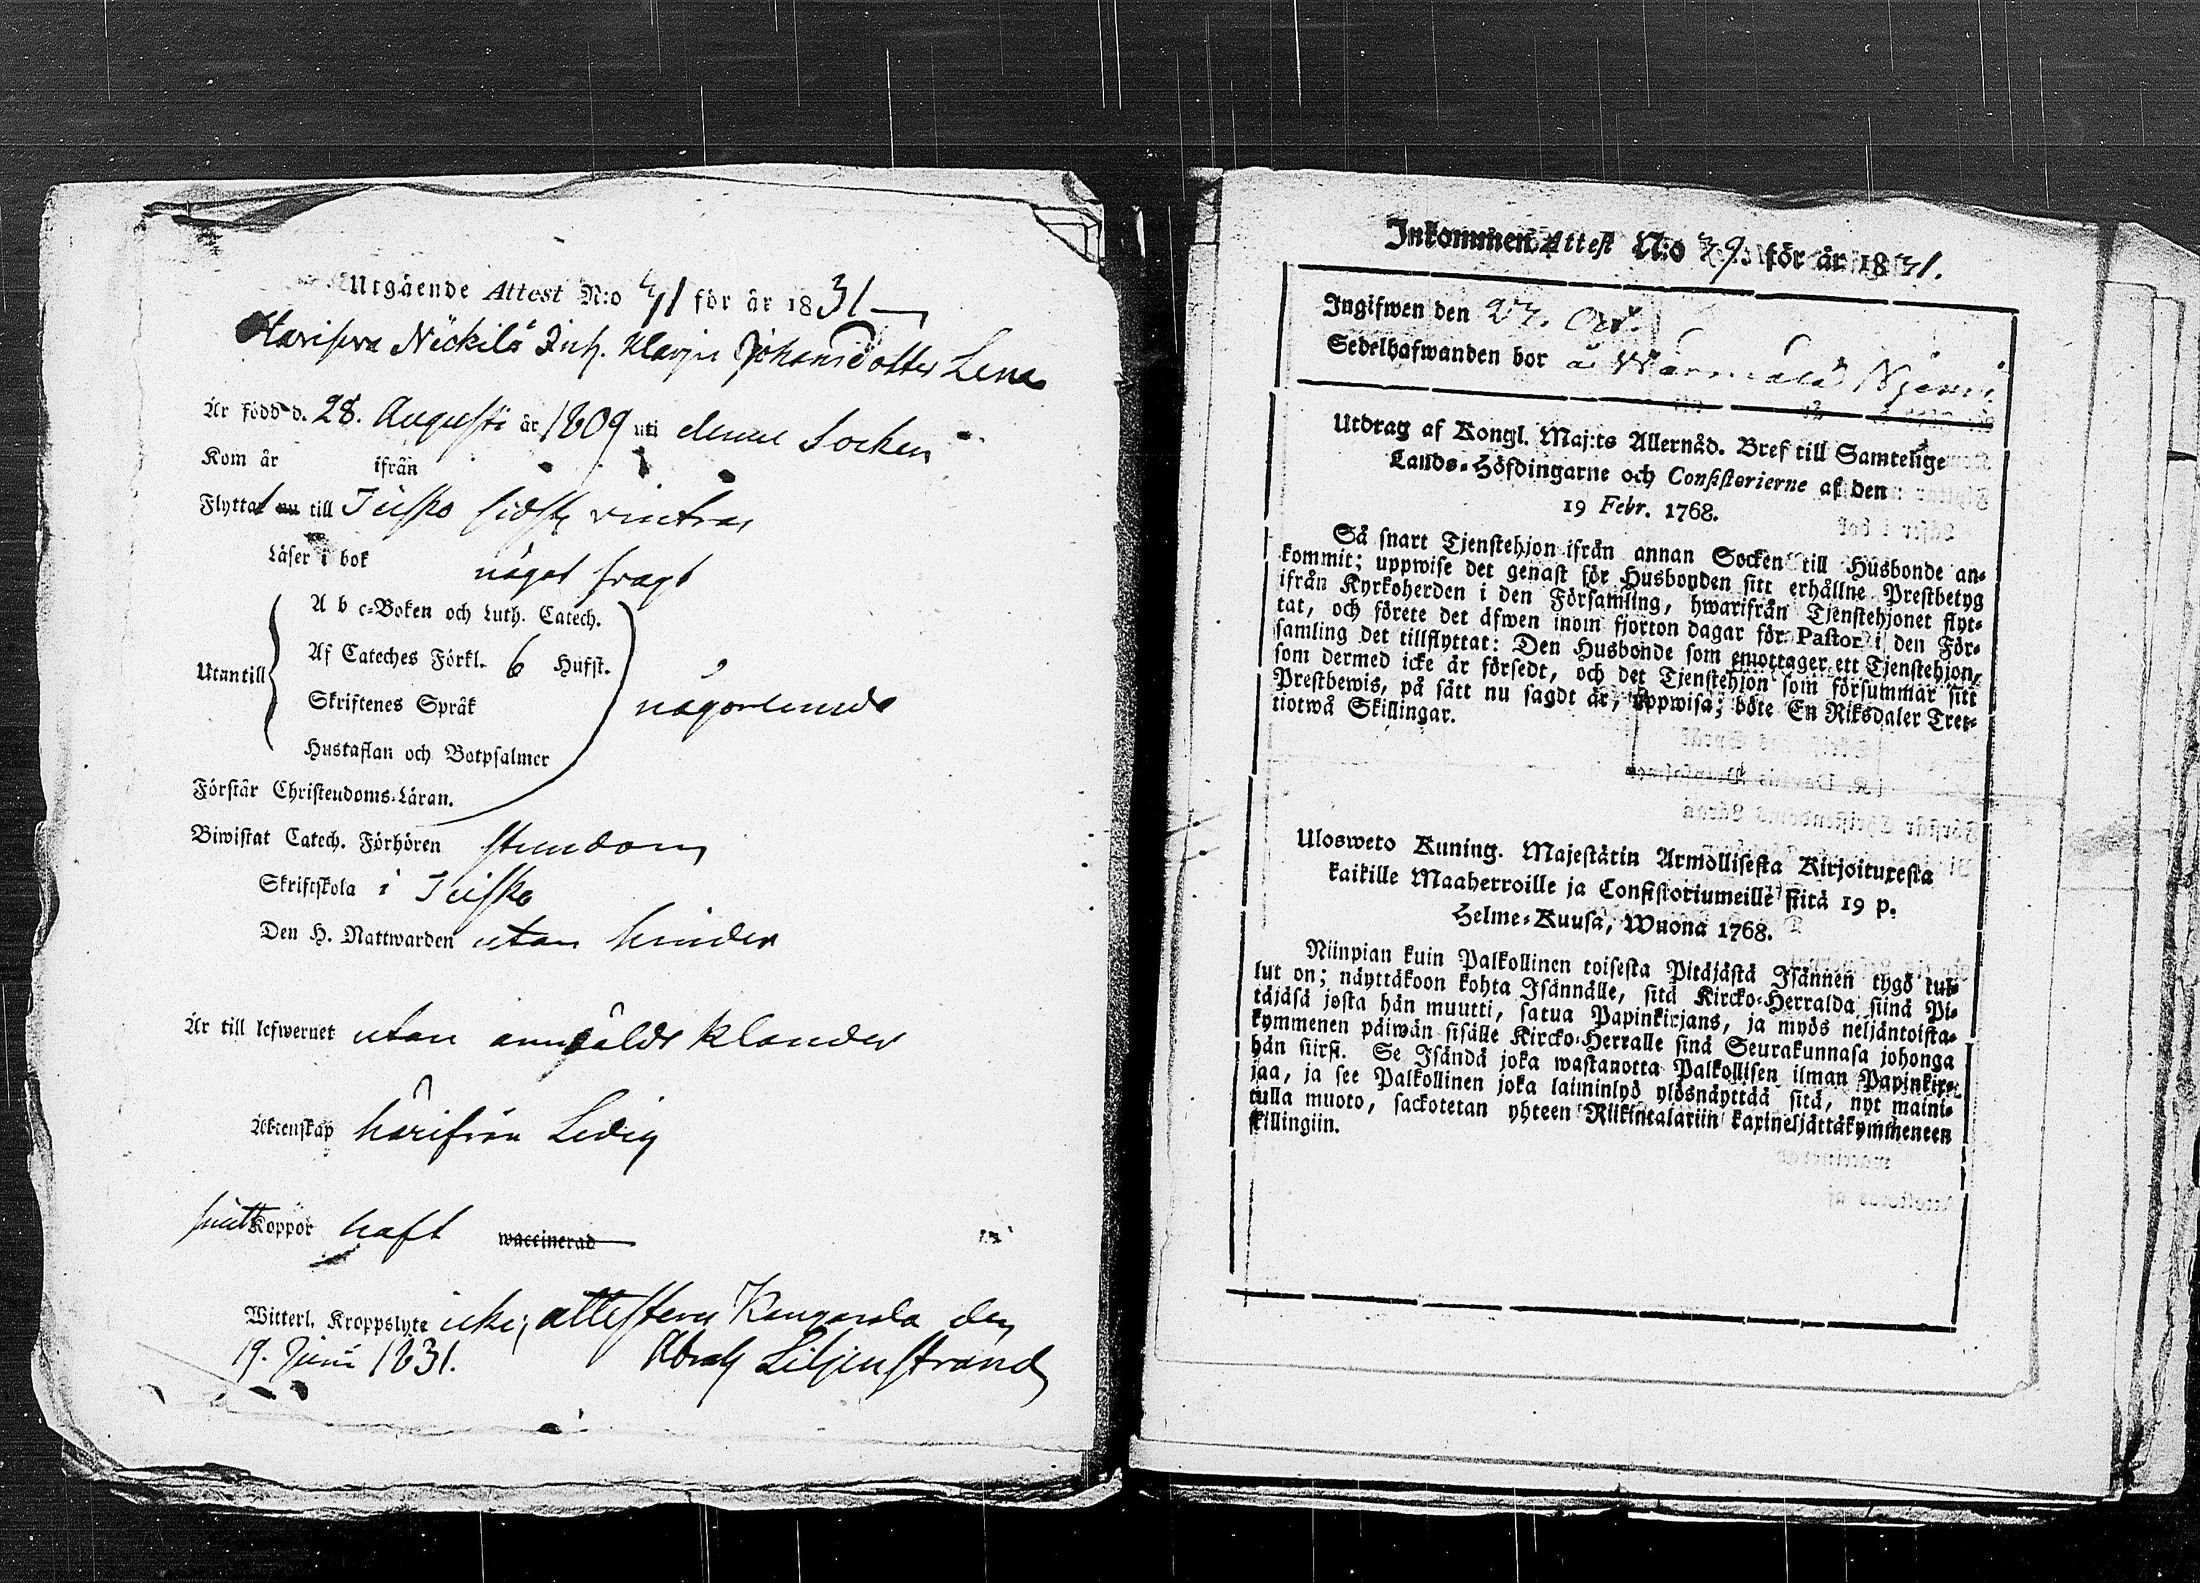 Utgående Attest N:o 41 för år 1831
Harisera Nickilä Inh. Johansdotter Lena
Är född d. 28. Augusti år 1809 uti denne Socken
Kom år ifrån
Flyttat nu till sidste vintras
Läser i bok något svagt
A b c-Boken och Luth. Catech.
Af Cateches Förkl. 6 Hufst.
Utantill
någorlunda
Skriftenes Språk
Hustaflan och Botpsalmer
Förstår Christendoms-Läran.
Biwistat Catech. Förhören stundom
Skriftskola i
Den H. Nattwarden utan hinder
Är till lefwernet utan anmäldt klander
Äktenskap härifrån Ledig
haft Koppor waccinerad
Witterl. Kroppslyte icke; attesterar Kangasala den
19. Junii 1831. Abrah Liljenstrand
Inkommen Attest N:o 29. för år 1831.
Ingifwen den 27. Oct.
Sedelhafwanden bor å
Utdrag af Kongl. Maj:ts Allernåd. Bref till Samtelige
Lands-Höfdingarne och Consistorierne af den
19 Febr. 1768.
Så snart Tjenstehjon ifrån annan Socken till Husbonde an-
kommit; uppwise det genast för Husbonden sitt erhållne Prestbetyg
ifrån Kyrkoherden i den Församling, hwarifrån Tjenstehjonet flyt-
tat, och förete det äfwen inom fjorton dagar för Pastor i den För-
samling det tillflyttat: Den Husbonde som emottager ett Tjenstehjon,
som dermed icke är försedt, och det Tjenstehjon som försummar sitt
Prestbewis, på sätt nu sagdt är, uppwisa; böte En Riksdaler Tret-
tiotwå Skillingar.
Ulosweto Kuning. Majestätin Armollisesta Kirjoituxesta
kaikille Maaherroille ja Consistoriumeille siitä 19 p.
Helme-Kuusa, Wuona 1768.
Niinpian kuin Palkollinen toisesta Pitäjästä Isännen tygö tul-
lut on; näyttäkoon kohta Isännälle, sitä Kircko-Herralda siinä Pi-
täjäsä josta hän muutti, satua Papinkirjans, ja myös neljäntoista-
kymmenen päiwän sisälle Kircko-Herralle sinä Seurakunnasa johonga
hän siirsi. Se Isändä joka wastanotta Palkollisen ilman Papinkir-
jaa, ja see Palkollinen joka laiminlyö ylösnäyttää sitä, nyt maini-
tulla muoto, sackotetan yhteen Riikintalariin kaxineljättäkymmeneen
skillingiin.